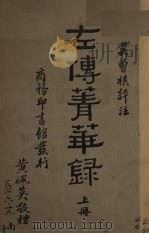 吴曾祺評注
左傳菁華録
上冊
商務印書館發行
黄佩英敬贈